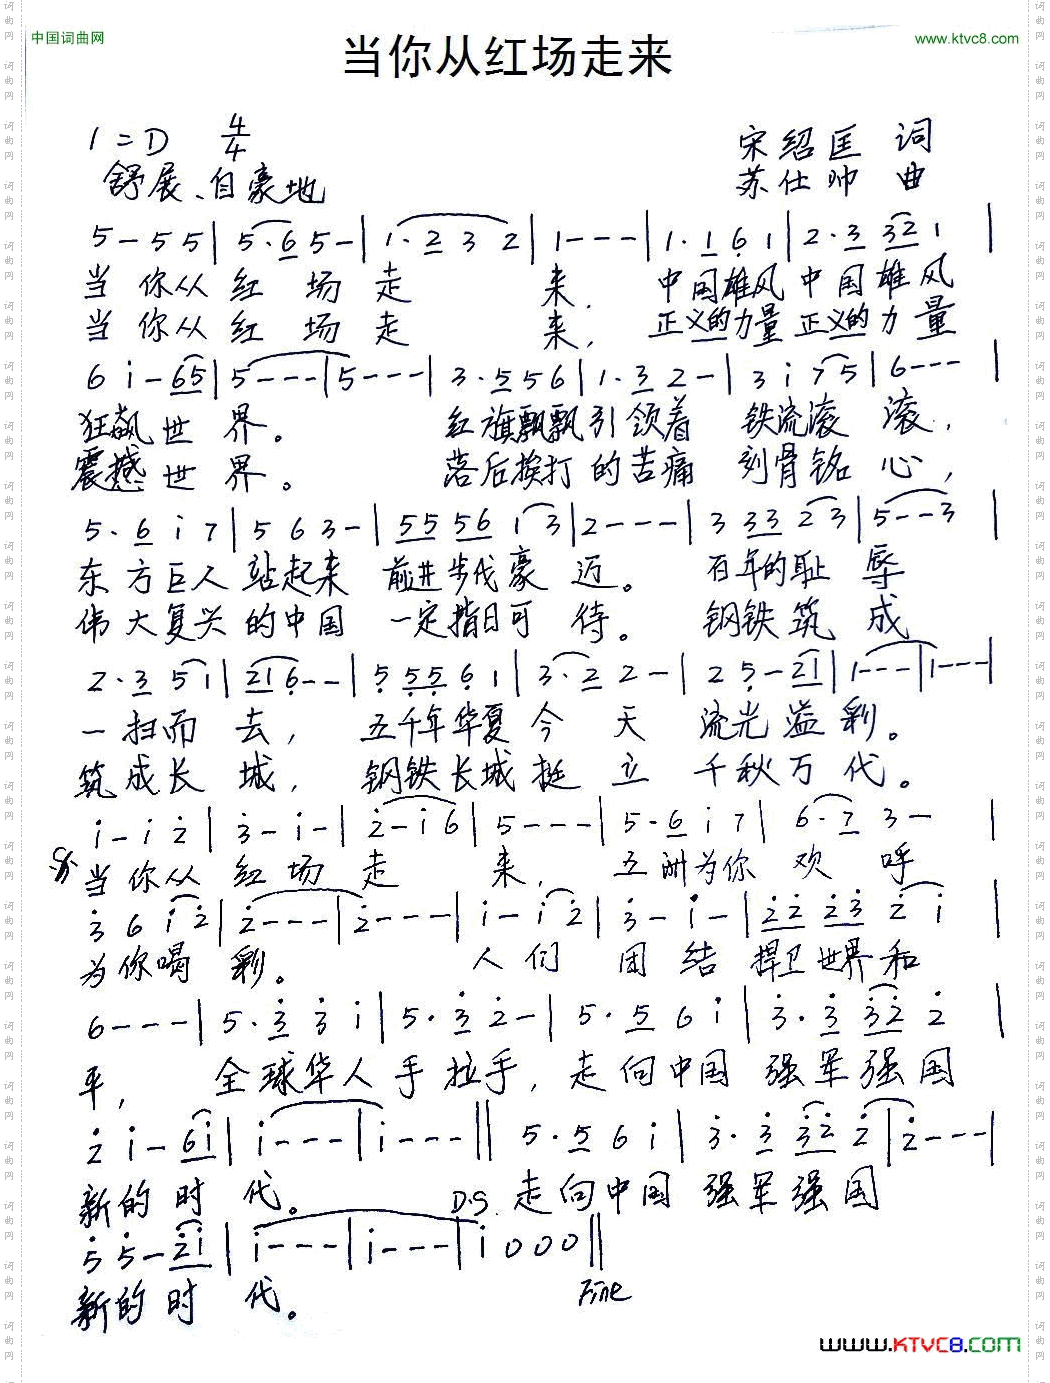 中国词曲网
www.ktvc8.com
当你从红场走来
1=D 4/4
宋绍匡 词
舒展、自豪地
苏仕帅 曲
5 - 5 5 | 5. 6 5 - | 1. 2 3 2 | 1 - - - | 1. 1 6 1 | 2. 3 3 2 1 |
当 你从 红 场 走 来, 中国雄风 中国雄风
当 你从 红 场 走 来, 正义的力量 正义的力量
6 i - 6 5 | 5 - - - | 5 - - - | 3. 5 5 6 | 1. 3 2 - | 3 i 7 5 | 6 - - - |
狂飙 世 界。 红旗飘飘引领着 铁流滚 滚,
震撼 世 界。 落后挨打的苦痛 刻骨铭 心,
5. 6 i 7 | 5 6 3 - | 5 5 5 6 1 3 | 2 - - - | 3 3 3 2 3 | 5 - - 3 |
东方巨人 站起来 前进步伐豪 迈。 百年的耻 辱
伟大复兴 的中国 一定指日可 待。 钢铁筑 成
2. 3 5 i | 2 1 6 - - | 5 5 5 6 1 | 3. 2 2 - | 2 5 - 2 1 | 1 - - - | 1 - - - |
一扫而 去, 五千年华夏 今 天 流光溢彩。
筑成长 城, 钢铁长城挺 立 千秋万代。
i - i 2 | 3 - i - | 2 - i 6 | 5 - - - | 5. 6 i 7 | 6. 7 3 - |
当 你从 红 场 走 来, 五洲为你 欢 呼
3 6 i 2 | 2 - - - | 2 - - - | i - i 2 | 3 - i - | 2 2 2 3 2 i |
为你喝 彩。 人 们 团 结 捍卫世界和
6 - - - | 5. 3 3 i | 5. 3 2 - | 5. 5 6 i | 3. 3 3 2 2 |
平, 全球华人 手拉手, 走向中国 强军强国
2 i - 6 i | i - - - | i - - - || 5. 5 6 i | 3. 3 3 2 2 | 2 - - - |
新的 时 代。 D.S. 走向中国 强军强国
5 5 - 2 i | i - - - | i - - - | i 0 0 0 ||
新的 时 代。 Fine
www.KTVC8.com